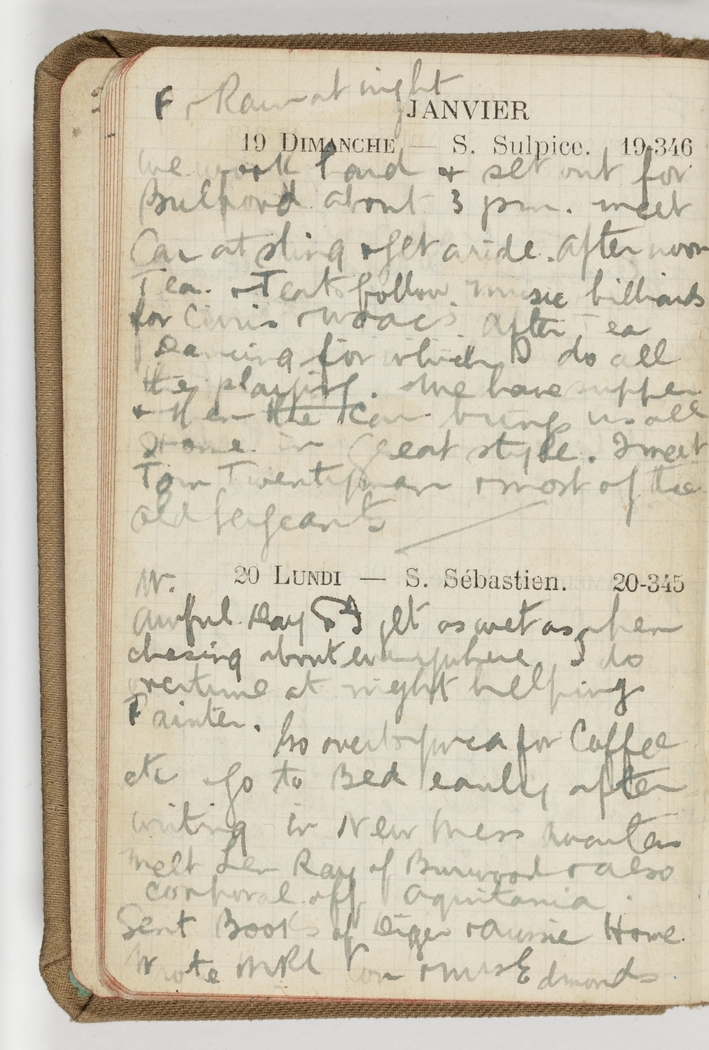 F, Rain at night
JANVIER
19 DIMANCHE — S. Sulpice. 19-346
we work hard & set out for
Bulford about 3 pm. meet
Car at sling & get a ride. afternoon
Tea. music billiards
for Civvis & waacs after Tea
Dancing for which I do all
the playing. We have supper
& then the Car brings us all
Home in great style. I meet
Tom Twentyman & most of the
old Sergeants
20 LUNDI — S. Sébastien. 20-345
W.
Awful Day & I get as wet as when
chasing about everywhere. I do
overtime at night helping
Painter.
Go over to ymca for Coffee
etc & go to Bed early after
writing in New Mess quarters
melt Len Ray of Burwood & also
corporal off Aquitania.
Sent Books of Digger & aussie Home.
Wrote & Miss Edmonds.